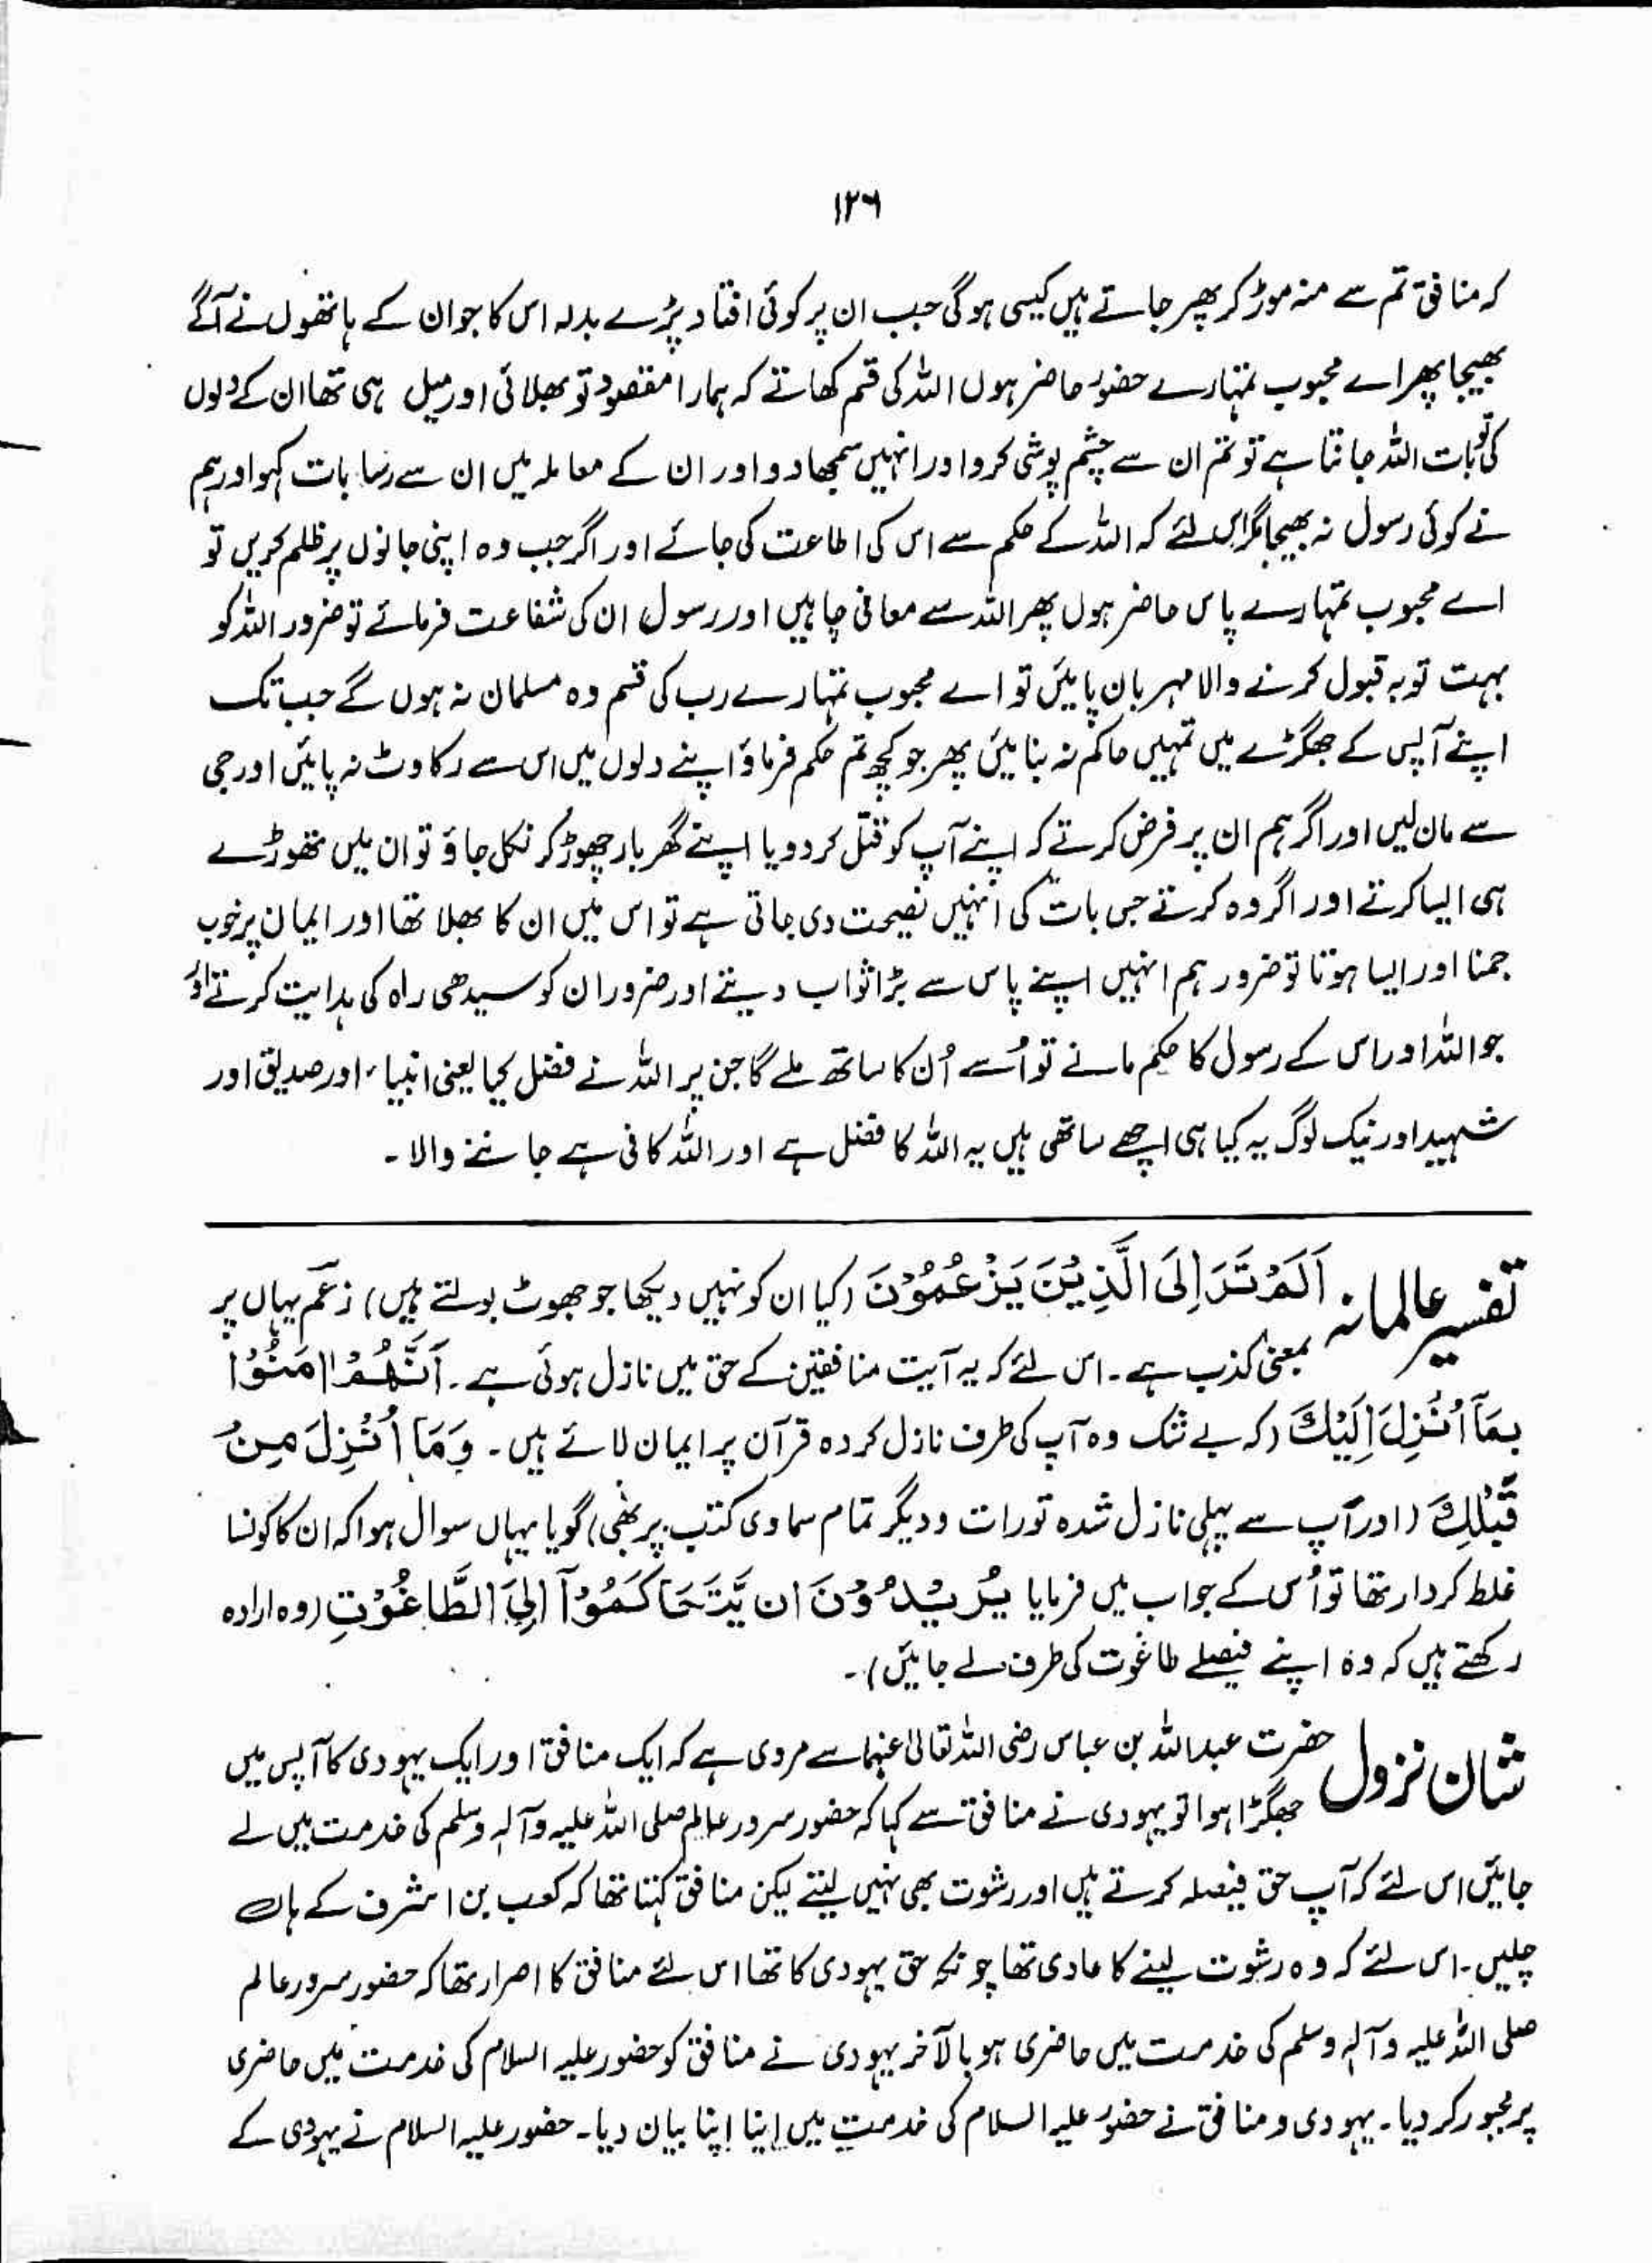 ۱۲۶
کہ منافق تم سے منہ موڑ کر پھر جاتے ہیں کیسی ہوگی جب ان پر کوئی افتاد پڑے بدلہ اس کا جو ان کے ہاتھوں نے آگے
بھیجا پھر اے محبوب تمہارے حضور حاضر ہوں اللہ کی قسم کھاتے کہ ہمارا مقصود تو بھلائی اور میل ہی تھا ان کے دلوں
کی تو بات اللہ جانتا ہے تو تم ان سے چشم پوشی کرو اور انہیں سمجھا دو اور ان کے معاملہ میں ان سے رسا بات کہو اور ہم
نے کوئی رسول نہ بھیجا مگر اس لئے کہ اللہ کے حکم سے اس کی اطاعت کی جائے اور اگر جب وہ اپنی جانوں پر ظلم کریں تو
اے محبوب تمہارے پاس حاضر ہوں پھر اللہ سے معافی چاہیں اور رسول ان کی شفاعت فرمائے تو ضرور اللہ کو
بہت توبہ قبول کرنے والا مہربان پائیں تو اے محبوب تمہارے رب کی قسم وہ مسلمان نہ ہوں گے جب تک
اپنے آپس کے جھگڑے میں تمہیں حاکم نہ بنائیں پھر جو کچھ تم حکم فرماؤ اپنے دلوں میں اس سے رکاوٹ نہ پائیں اور جی
سے مان لیں اور اگر ہم ان پر فرض کرتے کہ اپنے آپ کو قتل کردو یا اپنے گھر بار چھوڑ کر نکل جاؤ تو ان میں تھوڑے
ہی ایسا کرتے اور اگر وہ کرتے جس بات کی انہیں نصیحت دی جاتی ہے تو اس میں ان کا بھلا تھا اور ایمان پر خوب
جمنا اور ایسا ہوتا تو ضرور ہم انہیں اپنے پاس سے بڑا ثواب دیتے اور ضرور ان کو سیدھی راہ کی ہدایت کرتے اور
جو اللہ اور اس کے رسول کا حکم مانے تو اُسے اُن کا ساتھ ملے گا جن پر اللہ نے فضل کیا یعنی انبیاء اور صدیق اور
شہید اور نیک لوگ یہ کیا ہی اچھے ساتھی ہیں یہ اللہ کا فضل ہے اور اللہ کافی ہے جاننے والا ۔
تفسیر عالمانہ اَلَمْ تَرَ اِلَی الَّذِیْنَ یَزْعُمُوْنَ (کیا ان کو نہیں دیکھا جو جھوٹ بولتے ہیں) زعم یہاں پر
بمعنی کذب ہے ۔ اس لئے کہ یہ آیت منافقین کے حق میں نازل ہوئی ہے ۔ اَنَّھُمْ اٰمَنُوْا
بِمَآ اُنْزِلَ اِلَیْکَ (کہ بے شک وہ آپ کی طرف نازل کردہ قرآن پر ایمان لائے ہیں ۔ وَمَآ اُنْزِلَ مِنْ
قَبْلِکَ (اور آپ سے پہلی نازل شدہ تورات و دیگر تمام سماوی کتب پر بھی) گویا یہاں سوال ہوا کہ ان کا کونسا
غلط کردار تھا تو اُس کے جواب میں فرمایا یُرِیْدُوْنَ ان یَّتَحَاکَمُوْآ اِلَی الطَّاغُوْتِ (وہ ارادہ
رکھتے ہیں کہ وہ اپنے فیصلے طاغوت کی طرف لے جائیں) ۔
شان نزول حضرت عبداللہ بن عباس رضی اللہ تعالیٰ عنہما سے مروی ہے کہ ایک منافق اور ایک یہودی کا آپس میں
جھگڑا ہوا تو یہودی نے منافق سے کہا کہ حضور سرور عالم صلی اللہ علیہ وآلہٖ وسلم کی خدمت میں لے
جائیں اس لئے کہ آپ حق فیصلہ کرتے ہیں اور رشوت بھی نہیں لیتے لیکن منافق کہتا تھا کہ کعب بن اشرف کے ہاں
چلیں ۔ اس لئے کہ وہ رشوت لینے کا عادی تھا چونکہ حق یہودی کا تھا اس لئے منافق کا اصرار تھا کہ حضور سرور عالم
صلی اللہ علیہ وآلہٖ وسلم کی خدمت میں حاضری ہو بالآخر یہودی نے منافق کو حضور علیہ السلام کی خدمت میں حاضری
پر مجبور کر دیا ۔ یہودی و منافق نے حضور علیہ السلام کی خدمت میں اپنا اپنا بیان دیا ۔ حضور علیہ السلام نے یہودی کے